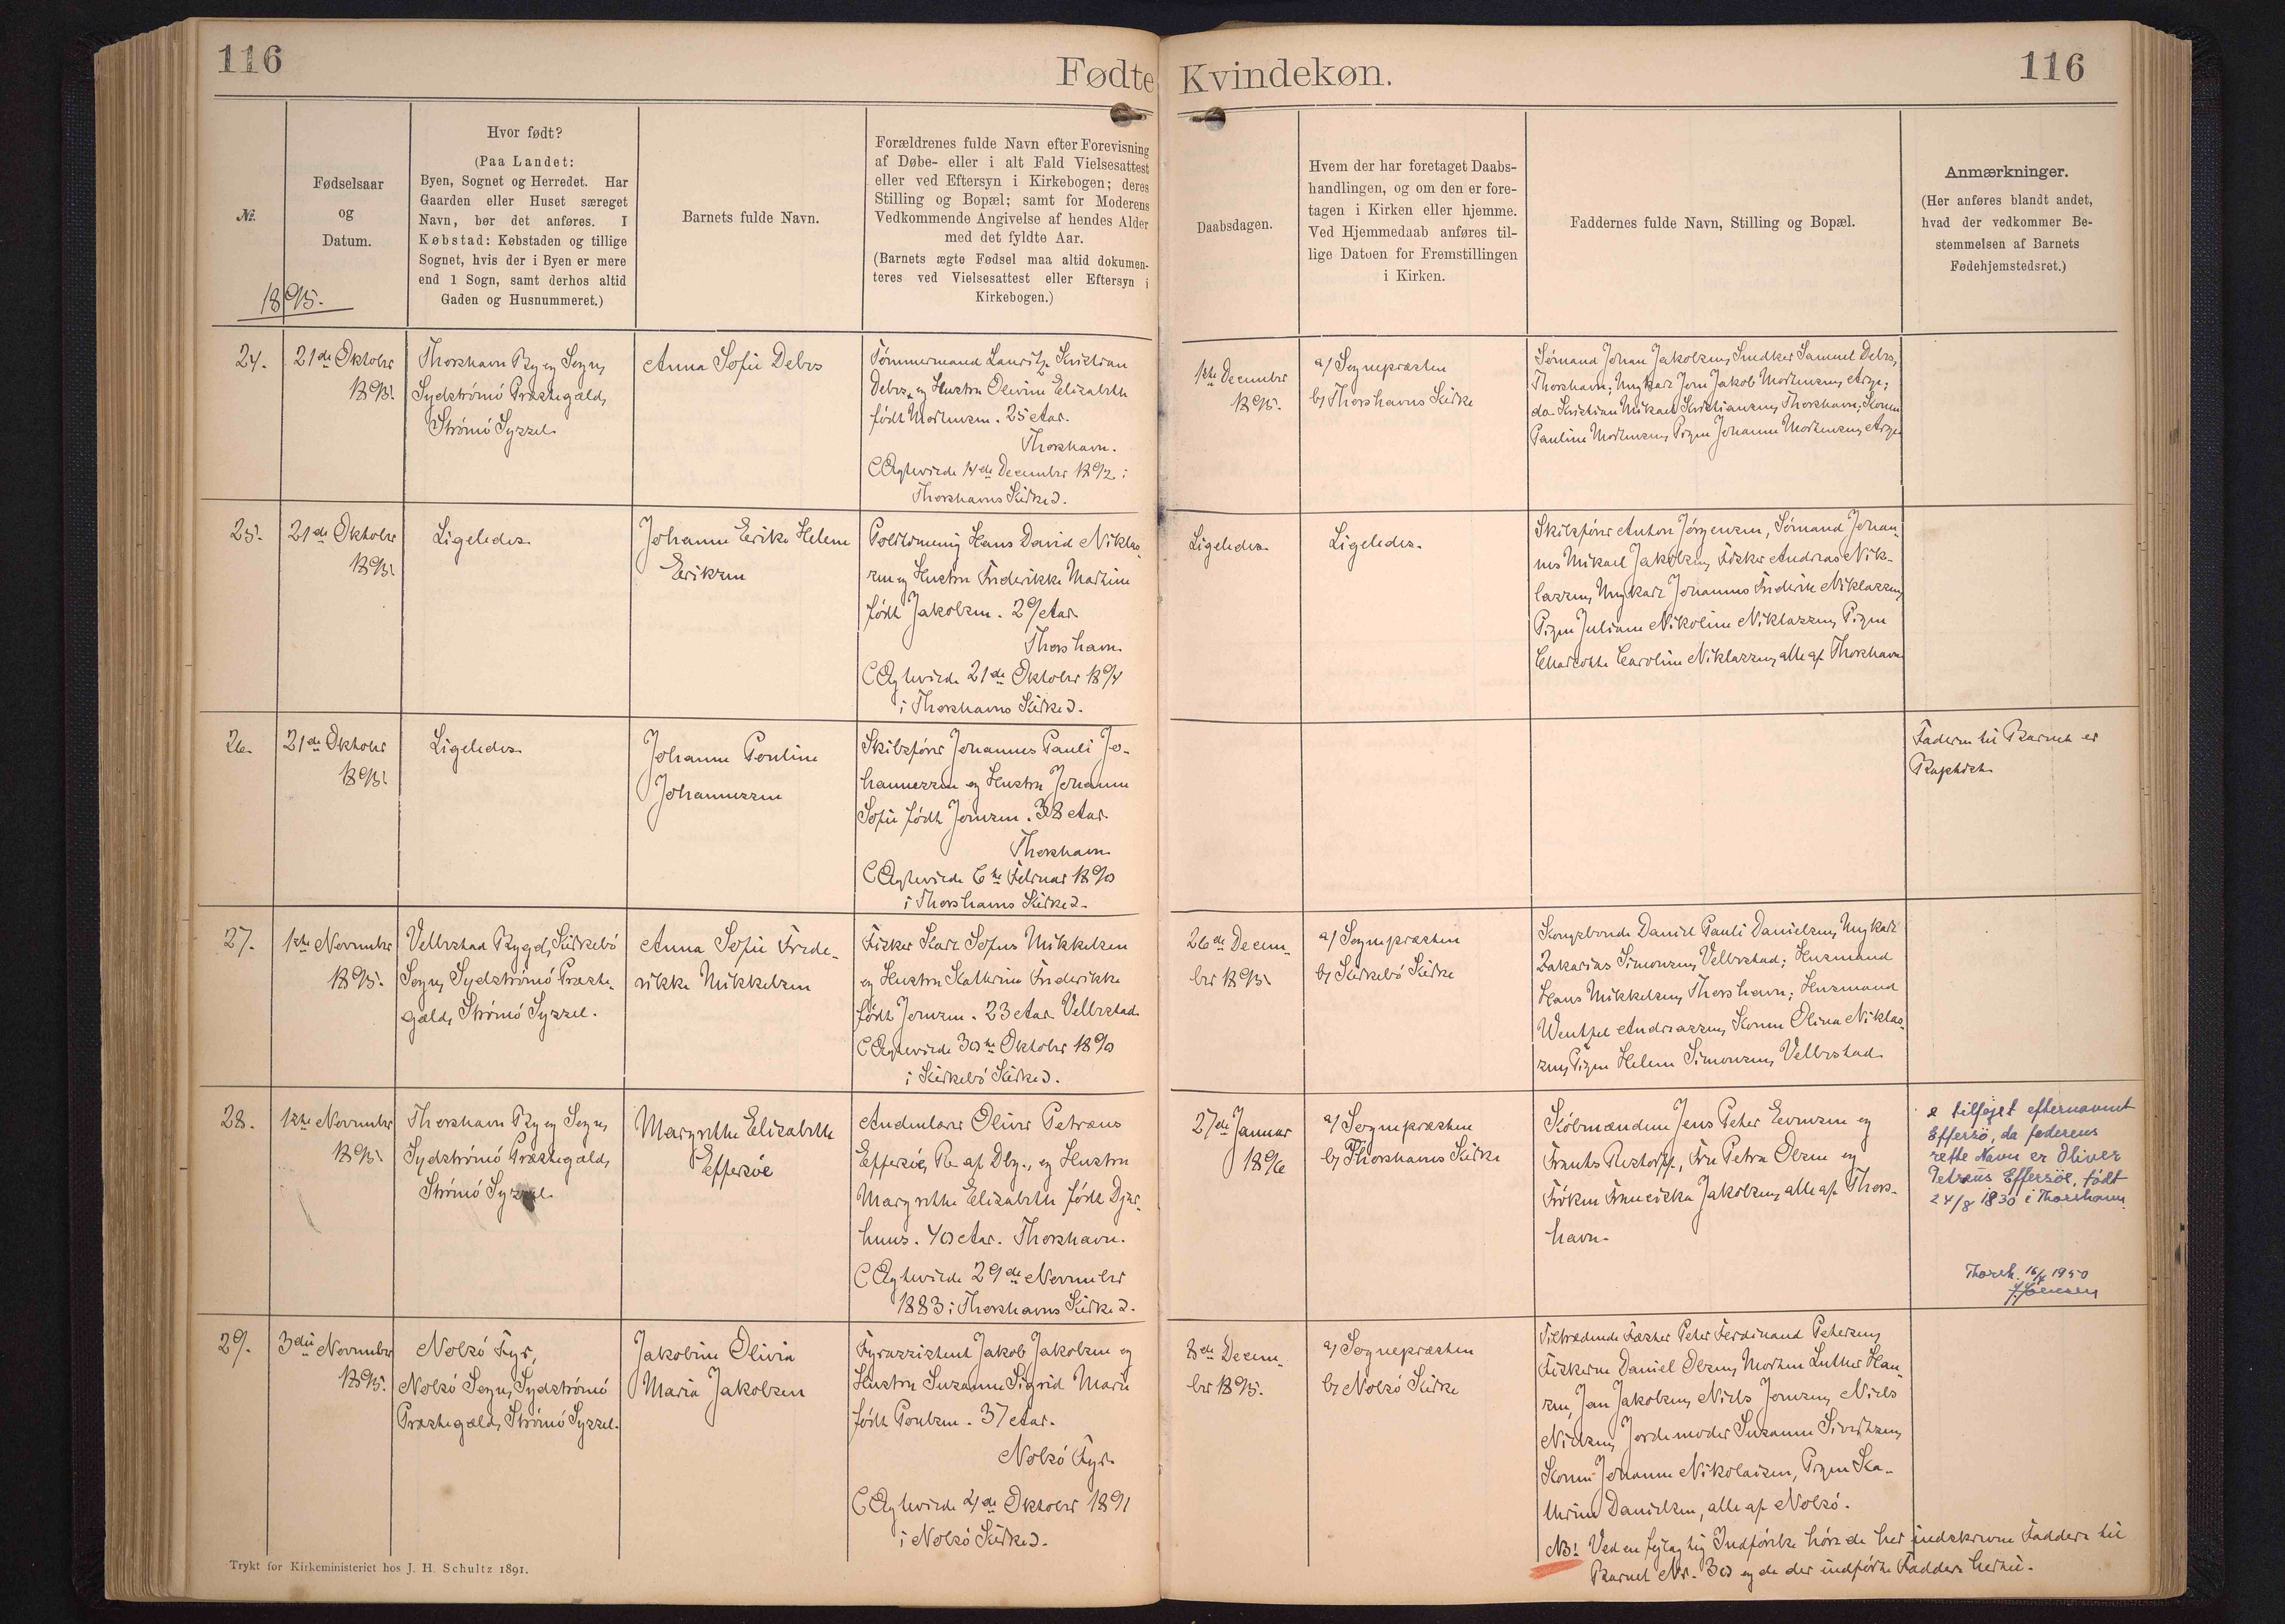 116
Fødte
Kvindekøn.
116
№.
Fødselsaar
og
Datum.
1895.
Hvor født?
(Paa Landet:
Byen, Sognet og Herredet. Har
Gaarden eller Huset særeget
Navn, bør det anføres. I
Købstad: Købstaden og tillige
Sognet, hvis der i Byen er mere
end 1 Sogn, samt derhos altid
Gaden og Husnummeret.)
Barnets fulde Navn.
Forældrenes fulde Navn efter Forevisning
af Døbe- eller i alt Fald Vielsesattest
eller ved Eftersyn i Kirkebogen; deres
Stilling og Bopæl; samt for Moderens
Vedkommende Angivelse af hendes Alder
med det fyldte Aar.
(Barnets ægte Fødsel maa altid dokumen-
teres ved Vielsesattest eller Eftersyn i
Kirkebogen.)
Daabsdagen.
Hvem der har foretaget Daabs-
handlingen, og om den er fore-
tagen i Kirken eller hjemme.
Ved Hjemmedaab anføres til-
lige Datoen for Fremstillingen
i Kirken.
Faddernes fulde Navn, Stilling og Bopæl.
Anmærkninger.
(Her anføres blandt andet,
hvad der vedkommer Be-
stemmelsen af Barnets
Fødehjemstedsret.)
24.
21de Oktober
1895.
Thorshavn By og Sogn,
Sydstrømø Præstegæld,
Strømø Syssel.
Anna Sofie Debes
Tømmermand Lauritz Kristian
Debes og Hustru Olivine Elisabeth
født Mortensen. 25 Aar.
Thorshavn.
(Ægteviede 14de December 1892 i
Thorshavns Kirke).
1ste December
1895.
a) Sognepræsten
b) Thorshavns Kirke
Sømand Johan Jakobsen, Snedker Samuel Debes,
Thorshavn; Ungkarl Jens Jakob Mortensen, Arge;
do. Kristian Mikael Kristiansen, Thorshavn; Konen
Pauline Mortensen, Pigen Johanne Mortensen, Arge
25.
21de Oktober
1895.
Ligeledes
Johanne Erike Helene
Eriksen
Hans David Niklas-
sen og Hustru Frederikke Martine
født Jakobsen. 29 Aar.
Thorshavn
(Ægteviede 21de Oktober 1894
i Thorshavns Kirke).
Ligeledes
Ligeledes.
Skibsfører Anton Jørgensen, Sømand Johan-
nes Mikael Jakobsen, Fisker Andreas Nik-
lassen, Ungkarl Johannes Frederik Niklassen,
Pigen Juliane Nikoline Niklassen, Pigen
Charlotte Caroline Niklassen, alle af Thorshavn
26.
21de Oktober
1895.
Ligeledes
Johanne Pouline
Johannessen
Skibsfører Johannes Pauli Jo-
hannessen og Hustru Johanne
Sofie født Joensen. 38 Aar.
Thorshavn
(Ægteviede 6te Februar 1890
i Thorshavns Kirke).
Faderen til Barnet er
Baptist.
27.
1ste November
1895.
Velbestad Bygd, Kirkebø
Sogn, Sydstrømø Præste-
gæld, Strømø Syssel.
Anna Sofie Frede-
rikke Mikkelsen
Fisker Karl Sofus Mikkelsen
og Hustru Kathrine Frederikke
født Joensen. 23 Aar. Velbestad
(Ægteviede 30te Oktober 1890
i Kirkebø Kirke).
26de Decem-
ber 1895.
a) Sognepræsten
b) Kirkebø Kirke
Kongsbonde Daniel Pauli Danielsen, Ungkarl
Zakarias Simonsen, Velbestad; Husmand
Hans Mikkelsen, Thorshavn; Husmand
Wentzel Andreassen, Konen Olina Niklas-
sen, Pigen Helene Simonsen, Velbestad
28.
1ste November
1895.
Thorshavn By og Sogn,
Sydstrømø Præstegæld,
Strømø Syssel
Margrethe Elisabeth
Effersøe
Oliver Petræus
Effersøe, R. af Dbg., og Hustru
Margrethe Elisabeth født Djur-
huus. 40 Aar. Thorshavn.
(Ægteviede 29de November
1883 i Thorshavns Kirke).
27de Januar
1896
a) Sognepræsten
b) Thorshavns Kirke
Købmændene Jens Peter Evensen og
Frants Restorff, Fru Petra Olsen og
Frøken Franciska Jakobsen, alle af Thors-
havn.
tilføjet efternavnet
Effersö, da faderens
rette Navn er Oliver
Petræus Effersöe, født
24/8 1830 i Thorshavn.
Thorsh. 16/4 1950
29.
3die November
1895.
Nolsø Fyr,
Nolsø Sogn, Sydstrømø
Præstegæld, Strømø Syssel.
Jakobine Olivia
Maria Jakobsen
Fyrassistent Jakob Jakobsen og
Hustru Susanne Sigrid Marie
født Poulsen. 37 Aar.
Nolsø Fyr.
(Ægteviede 4de Oktober 1891
i Nolsø Kirke).
8de Decem-
ber 1895.
a) Sognepræsten
b) Nolsø Kirke
Tiltrædende Fæster Peter Ferdinand Petersen,
Fiskerne Daniel Olsen, Morten Luther Han-
sen, Jan Jakobsen, Niels Joensen, Niels
Nielsen, Jordemoder Susanne Sivertsen,
Konen Johanne Nikolaisen, Pigen Ka-
thrine Danielsen, alle af Nolsø.
NB! Ved en fejlagtig Indførelse hører de her indskrevne Faddere til
Barnet Nr. 30 og de der indførte Faddere hertil.
Trykt for Kirkeministeriet hos J. H. Schultz 1891.